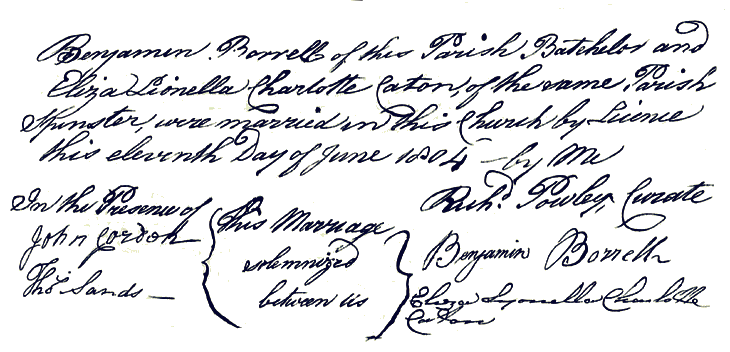 Benjamin Borrell of this Parish Batchelor and
Eliza Lionella Charlotte Caton, of the same Parish
Spinster, were married in this Church by Licence
this eleventh Day of June 1804 - by Me
Richd. Powley, Curate
In the Presence of
John Gordon
Thos Sands
This Marriage
solemnized
between us
Benjamin Borrell
Lyonella Charlotte
Caton